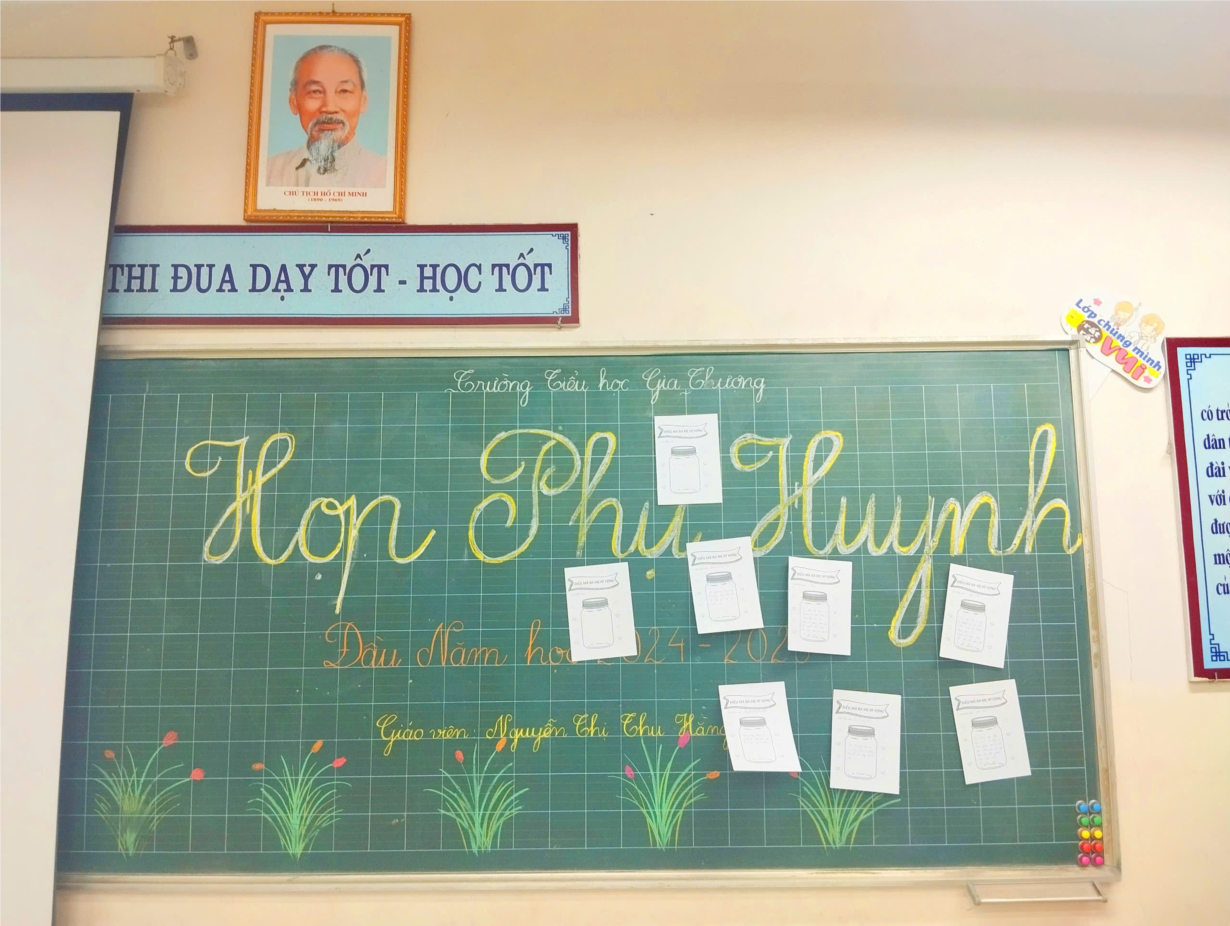 CHỦ TỊCH HỒ CHÍ MINH
(1890 - 1969)
THI ĐUA DẠY TỐT - HỌC TỐT
Lớp chúng mình
VUI
Trường Tiểu học Gia Thương
Họp Phụ Huynh
Đầu Năm học 2024 - 202
Giáo viên: Nguyễn Thị Thu Hằng
có
dân
đài
với
đượ
mộ
củ